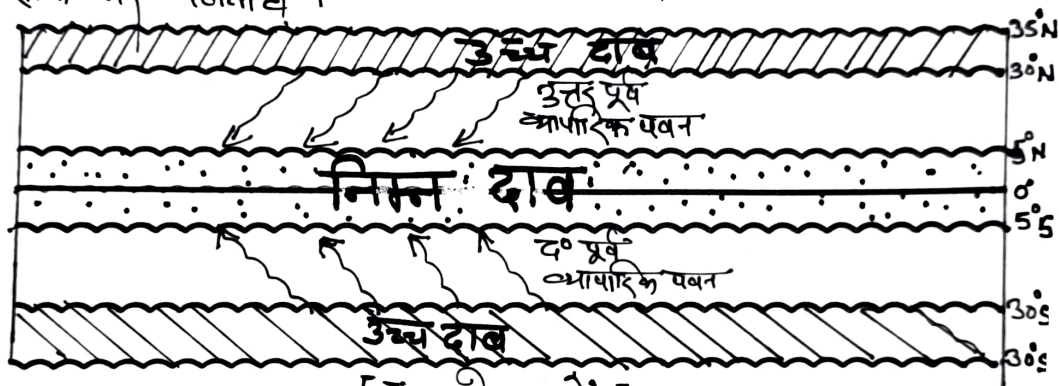 35°N
उच्च दाब
30°N
उत्तर पूर्व
व्यापारिक पवन
5°N
निम्न दाब
0°
5°S
द० पूर्व
व्यापारिक पवन
30°S
उच्च दाब
30°S